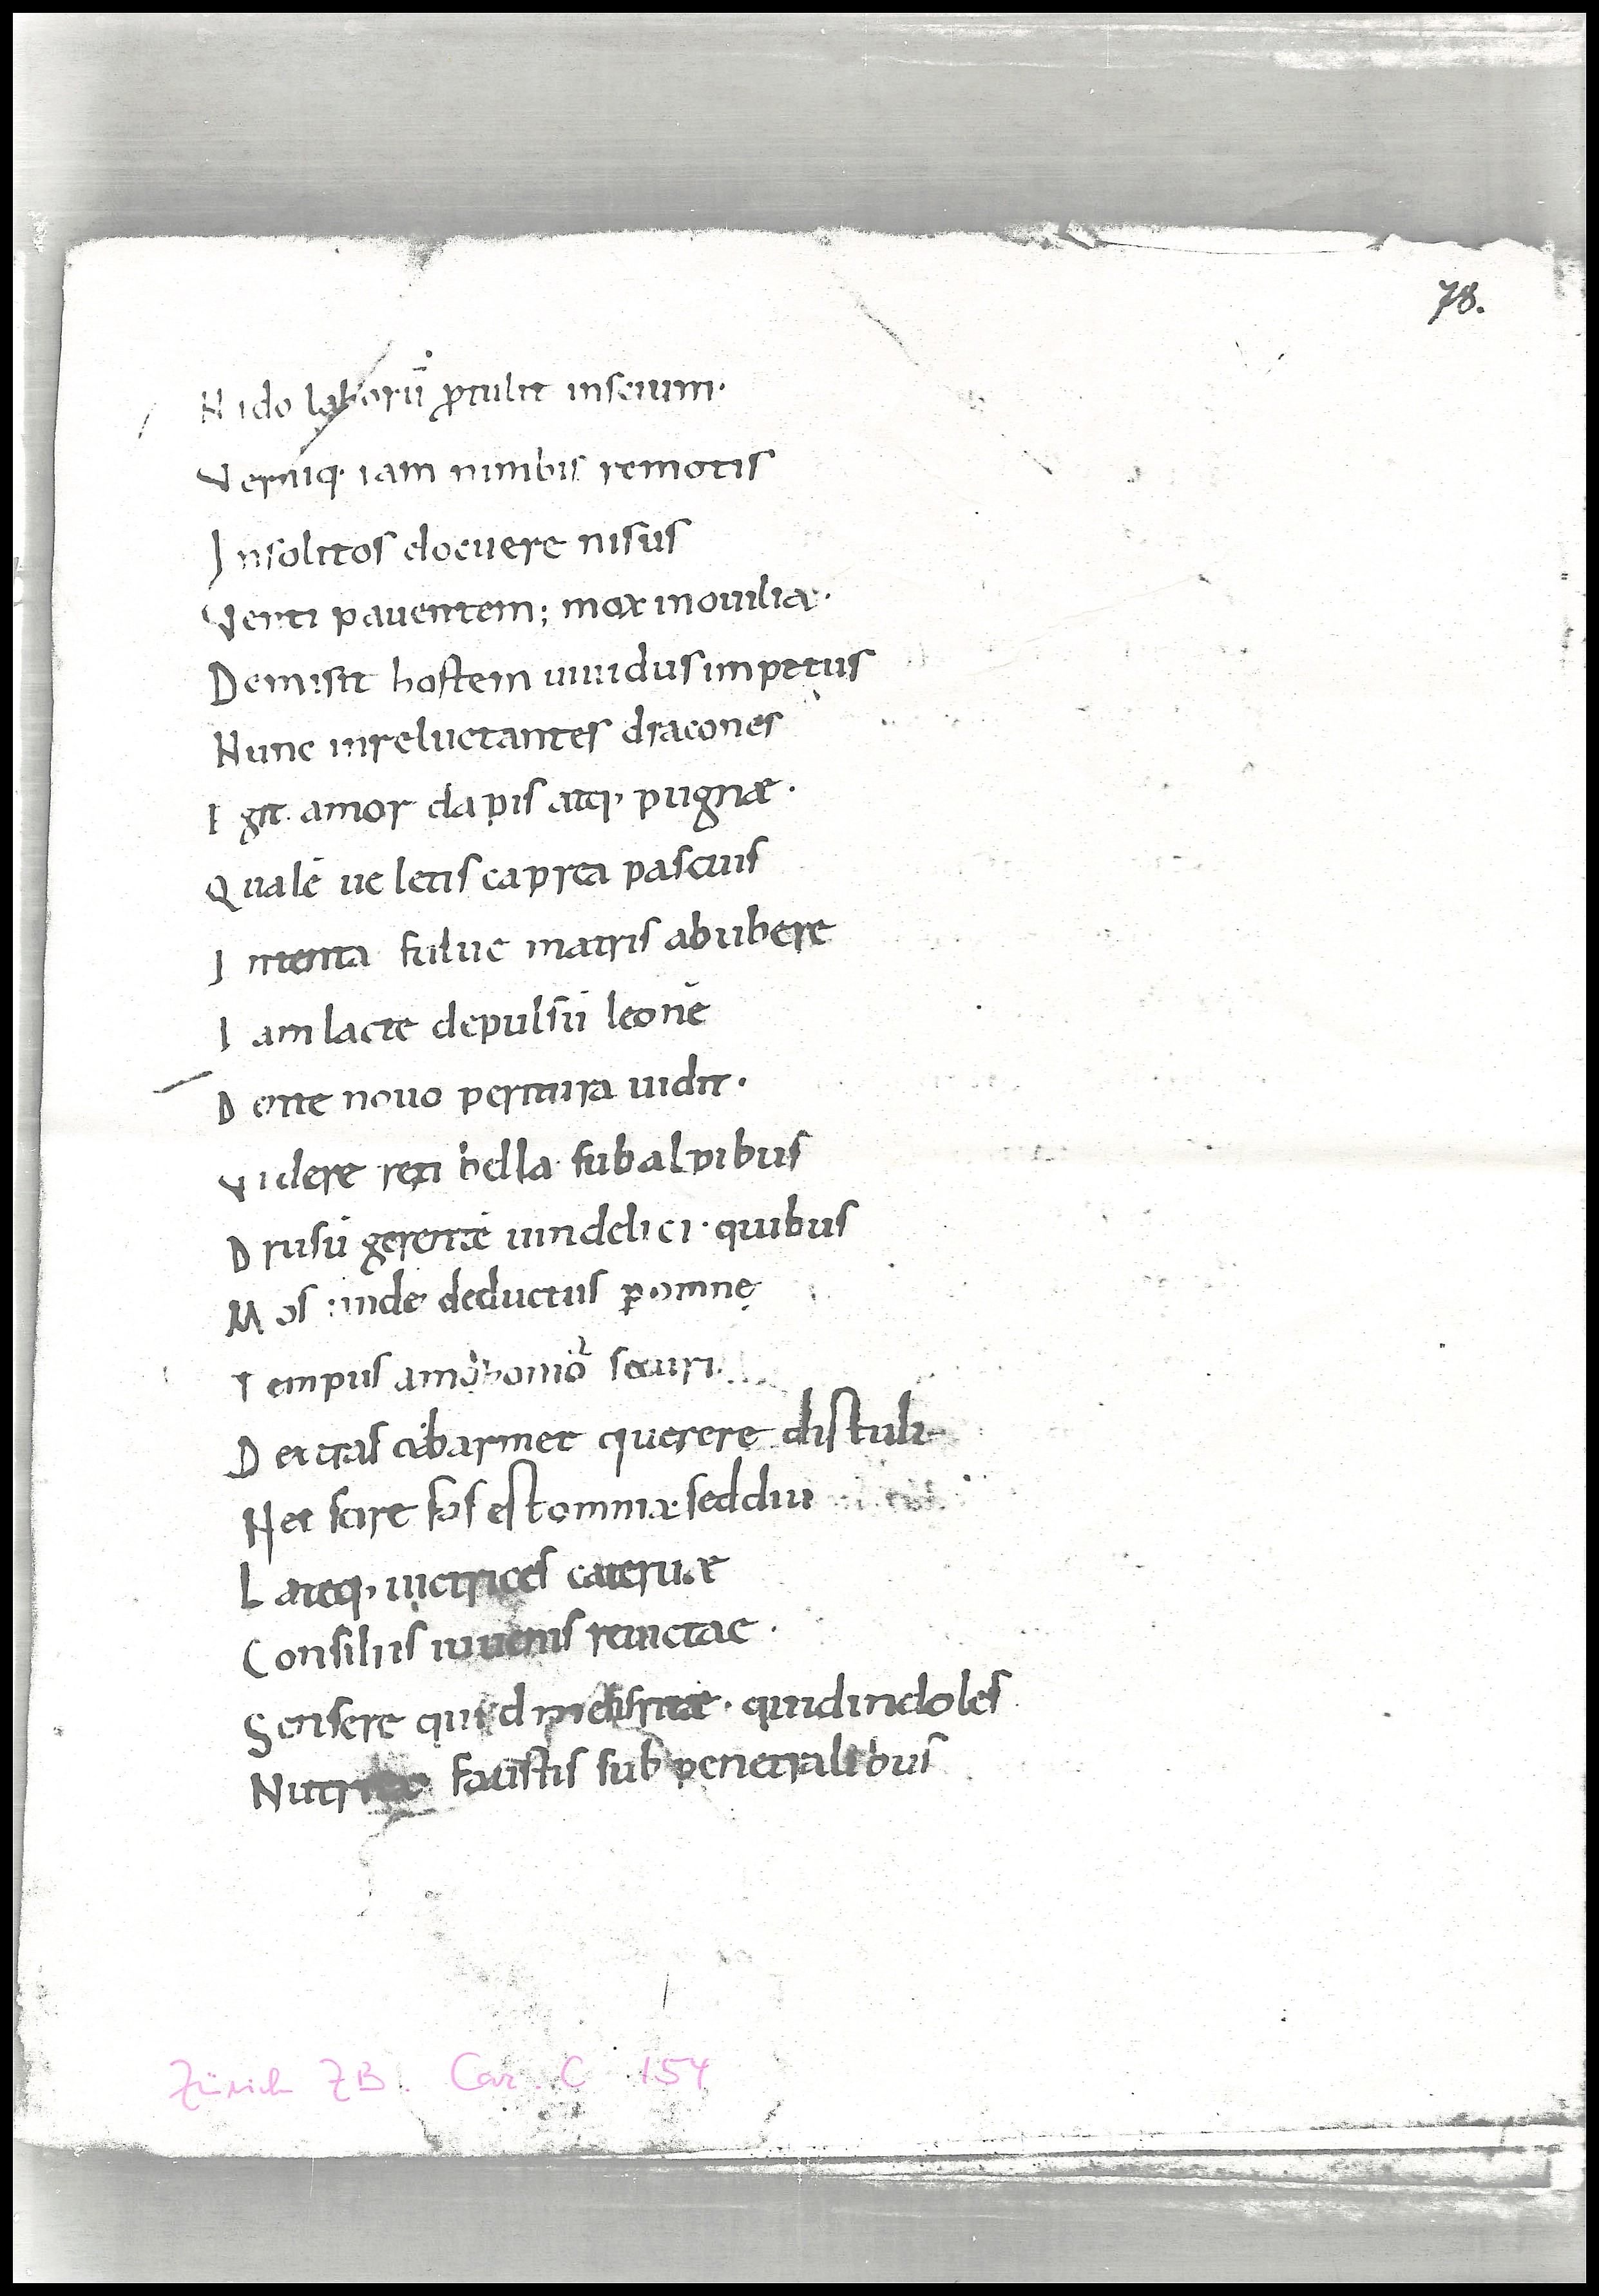 78.
Nido laborū ꝓtulit inscium·
Verniq· iam nimbis remotis
Insolitos docuere nisus
Venti pauentem; mox inouilia·
Demisit hostem uiuidus impetus
Nunc inreluctantes dracones
Igit amor dapis atq; pugnæ·
Qualē ue letis caprea pascuis
Intenta fulue matris abubere
Iam lacte depulsū leonē
Dente nouo peritura uidit·
Videre reti bella subalpibus
Drusū gerentē uindelici· quibus
Mos unde deductus ꝑomnę
Tempus securi
Dextras obarmet querere distuli
Nec scire fas est omnia· seddiu
Lateq; uictrices cateruæ
Consiliis iuuenis reuictae·
Sensere quid quidindoles
faustis sub penetralibus
Zürich ZB. Car. C 154